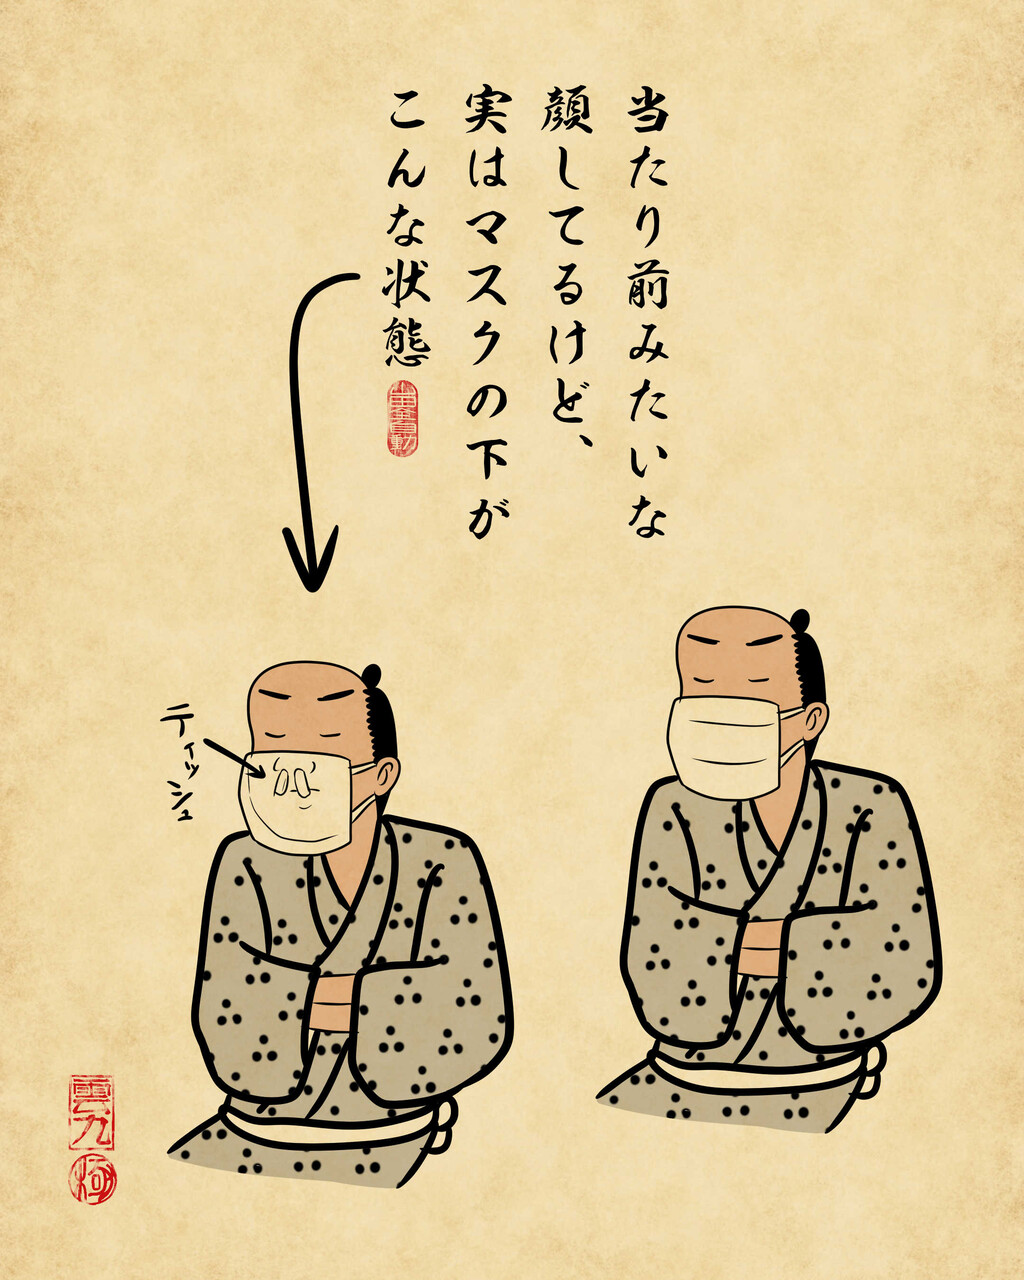 当たり前みたいな
顔してるけど、
実はマスクの下が
こんな状態
ティッシュ